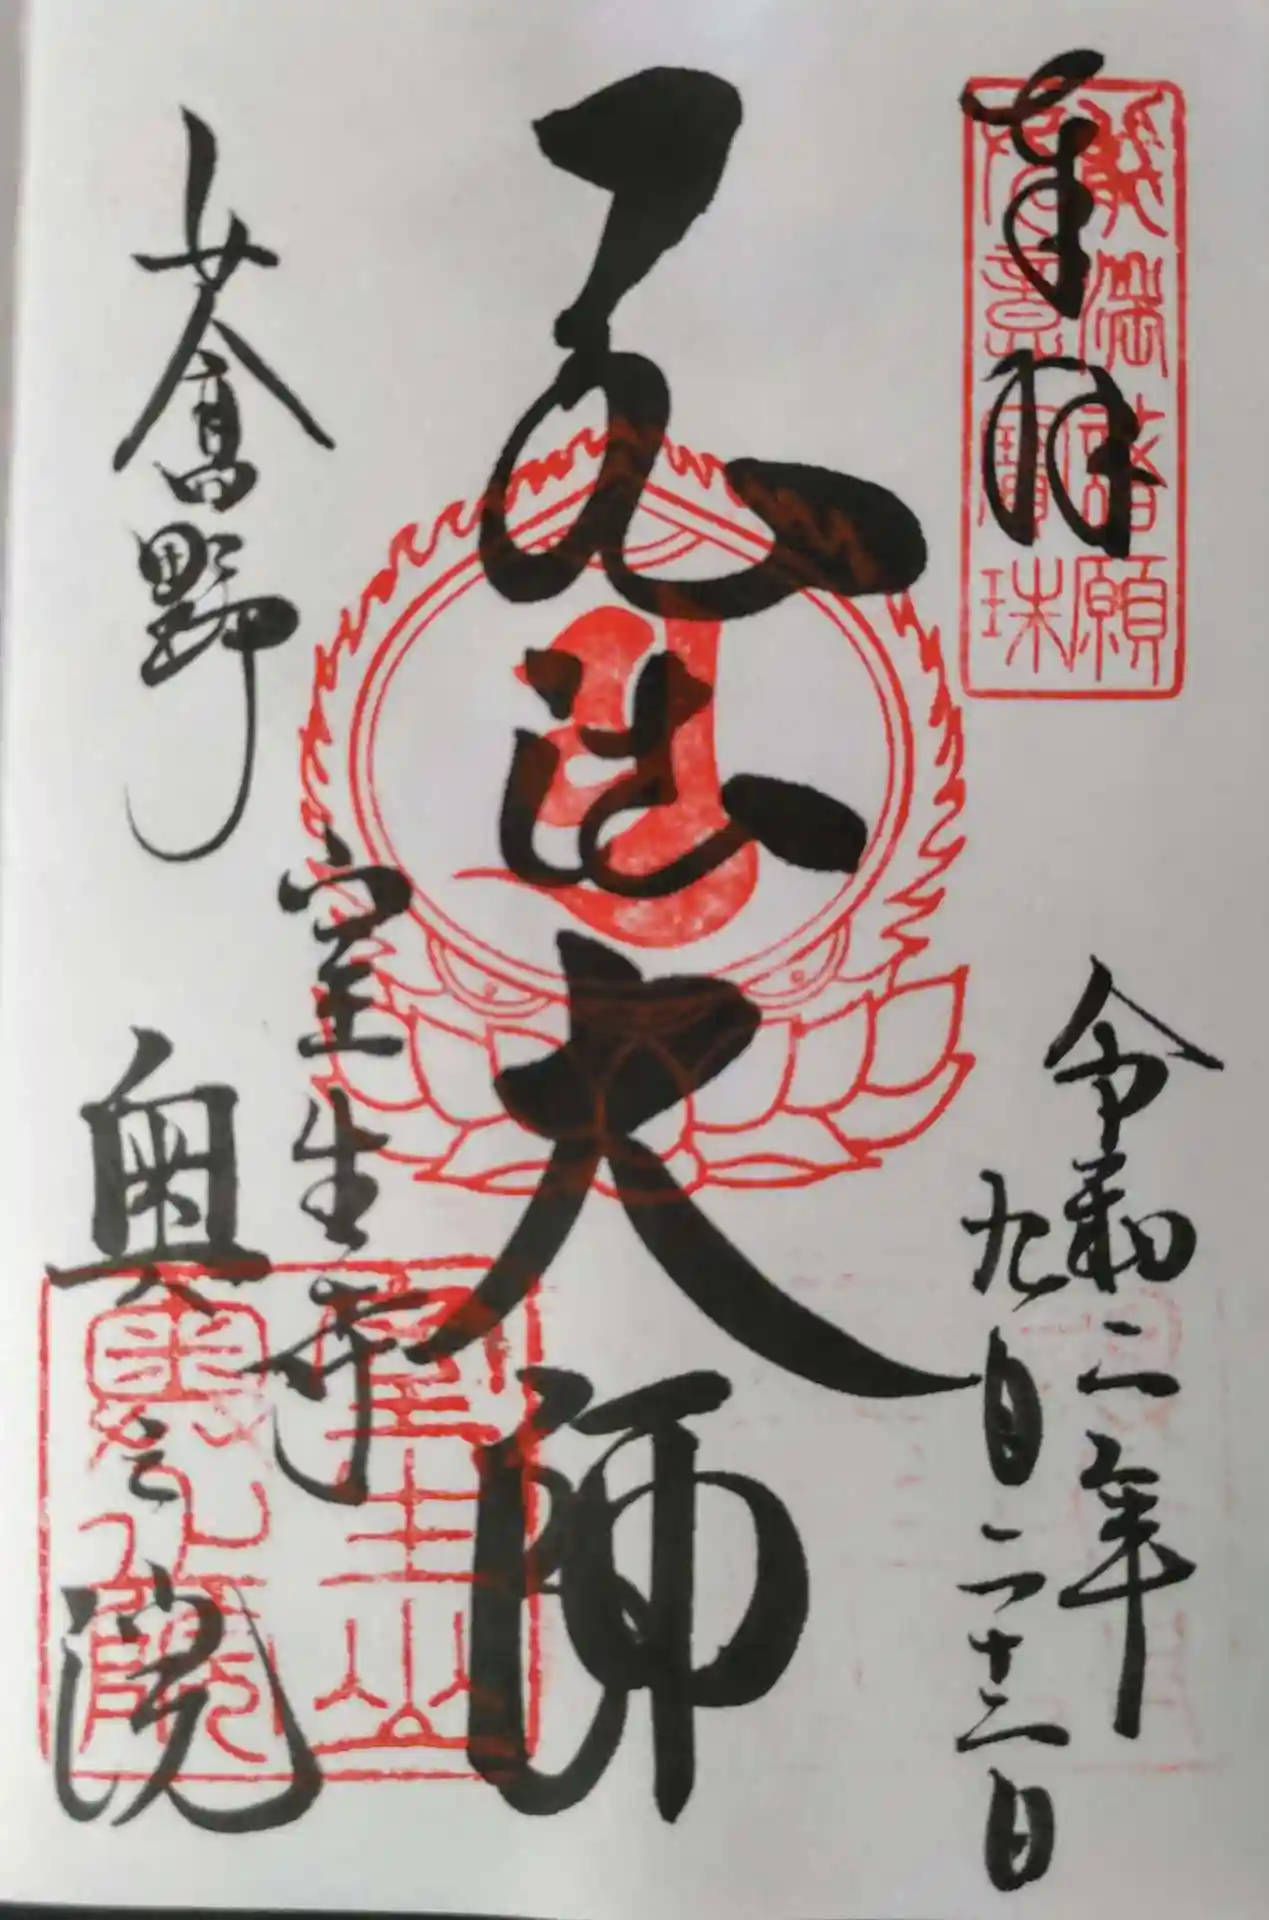 奉拝
能滿諸願
如意寶珠
令和二年
九月二十二日
弘法大師
女人高野
室生寺
奥之院
室生山
奥之院